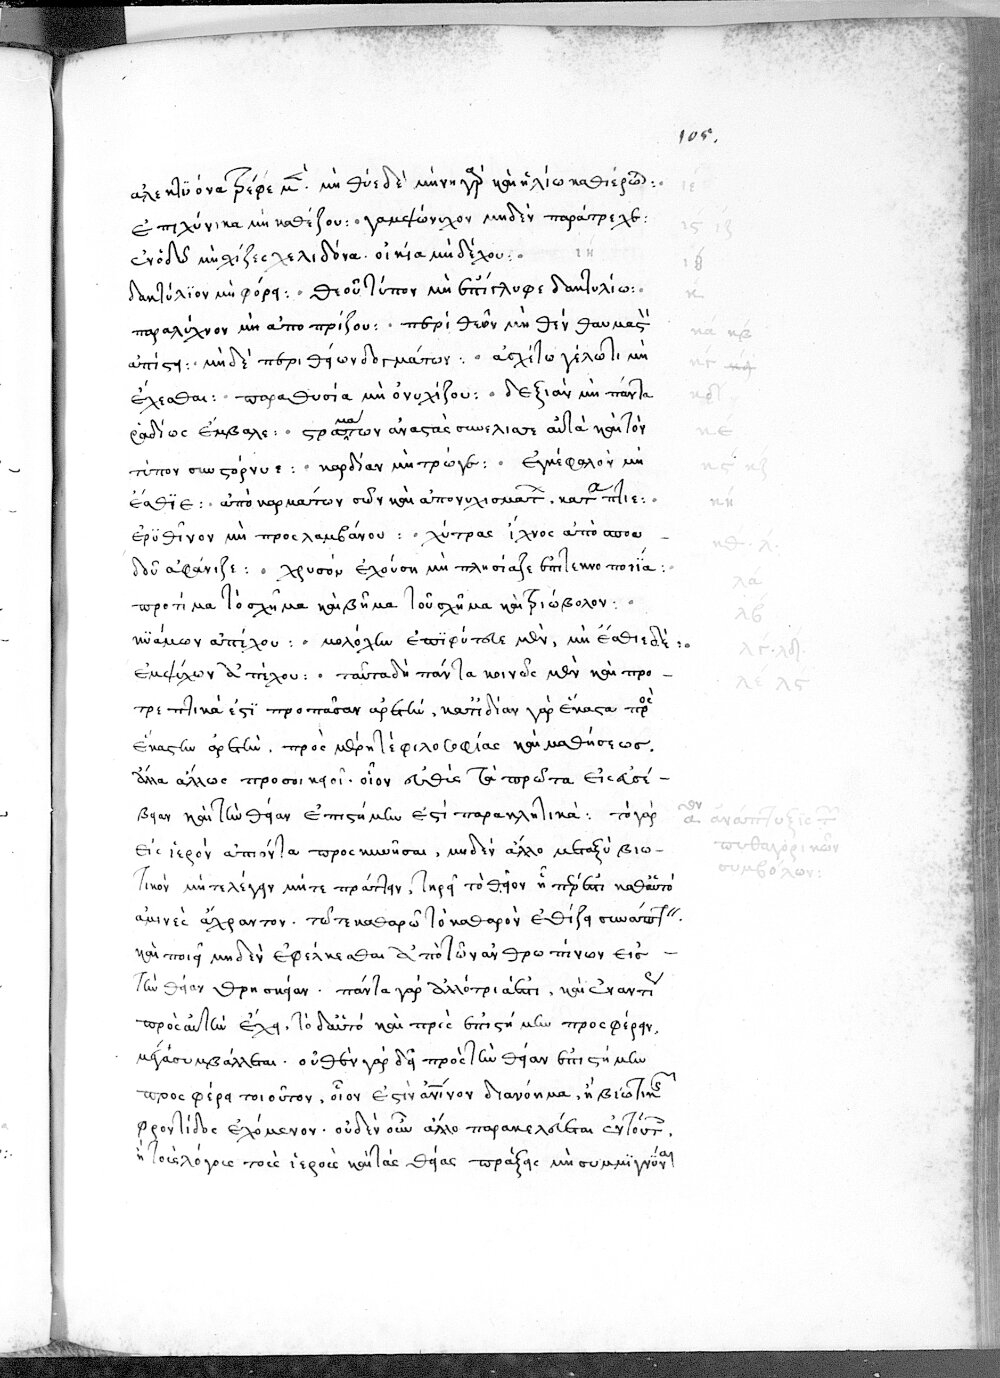 105.
ἀλεκτρυόνα τρέφε μὲν· μὴ θύε δέ· μήνη γὰρ καὶ ἡλίω καθιέρωται:· ιέ
ἐπιχύνικα μὴ καθέζου:· γαμψώνυχον μηδὲν παράτρεφε: ις ιζ
ἐν ὁδῶ μὴ σχίζε· χελιδόνα οἰκία μὴ δέχου:· ιη ιθ
δακτύλιον μὴ φόρει:· θεοῦ τύπον μὴ ἐπίγλυφε δακτυλίω:· κ
παρὰ λύχνον μὴ ἐσοπτρίζου:· περὶ θεῶν μηθὲν θαυμαστὸν κά κβ
ἀπίστει: μηδὲ περὶ θείων δογμάτων:· ἀσχέτω γέλωτι μὴ κγ
ἔχεσθαι:· παρὰ θυσία μὴ ὀνυχίζου:· δεξιὰν μὴ πάντα κδ
ῥαδίως ἔμβαλε:· στρωμάτων ἀναστὰς συνέλισσε αὐτὰ καὶ τὸν κε
τύπον συνστόρνυε:· καρδίαν μὴ τρῶγε:· ἐγκέφαλον μὴ κς κζ
ἔσθιε:· ἀποκαρμάτων σῶν καὶ ἀπονυχισμάτων κατάπτυε:· κη
ἐρυθῖνον μὴ προσλαμβάνου:· χύτρας ἴχνος ἀπὸ σποδοῦ κθ· λ·
δοῦ ἀφάνιζε:· χρυσὸν ἐχούση μὴ πλησίαζε ἐπὶ τεκνοποιία:· λά
προτίμα τὸ σχῆμα καὶ βῆμα τοῦ σχῆμα καὶ τριώβολον:· λβ
κυάμων ἀπέχου:· μολόχην ἐπιφύτευε μὲν, μὴ ἔσθιε δέ:· λγ·λδ·
ἐμψύχων ἀπέχου:· ταῦτα δὴ πάντα κοινῶς μὲν καὶ προ– λε λς
τρεπτικά ἐστι πρὸς πᾶσαν ἀρετήν, κατ' ἰδίαν γὰρ ἕκαστα πρὸς
ἑκάστην ἀρετήν. πρὸς μέρη τε φιλοσοφίας καὶ μαθήσεως.
ἄλλα ἄλλως προσοικειοῖ· οἷον εὐθὺς τὰ πρῶτα εἰς εὐσέ–
βειαν καὶ τὴν θείαν ἐπιστήμην ἐστὶ παρακλητικά: τὸ γὰρ
ἀνάπτυξις τῶν
πυθαγορικῶν
συμβόλων:
εἰς ἱερὸν ἀπιόντα προσκυνῆσαι, μηδὲν ἄλλο μεταξὺ βιω–
τικὸν μήτε λέγειν μήτε πράττειν, τηρεῖ τὸ θεῖον ᾗπέρ ἐστι καθ' αὑτὸ
ἀμιγὲς ἄχραντον. τῶ τε καθαρῶ τὸ καθαρὸν ἐθίζει συνάπτειν.
καὶ ποιεῖ μηδὲν ἐφέλκεσθαι ἀπὸ τῶν ἀνθρωπίνων εἰς –
τὴν θείαν θρησκείαν. πάντα γὰρ ἀλλότριά ἐστι, καὶ ἐναντίως
πρὸς αὐτὴν ἔχει, τὸ δ' αὐτὸ καὶ πρὸς ἐπιστήμην προσφέρειν.
μεγάλα συμβάλλεται. οὐθὲν γὰρ δεῖ πρὸς τὴν θείαν ἐπιστήμην
προσφέρειν τοιοῦτον, οἷον ἐστὶν ἀνθρώπινον διανόημα, ἢ βιωτικῆς
φροντίδος ἐχόμενον. οὐδὲν οὖν ἄλλο παρακελεύεται ἐν τούτοις.
ἢ τοὺς λόγους τοὺς ἱεροὺς καὶ τὰς θείας πράξεις μὴ συμμιγνύναι